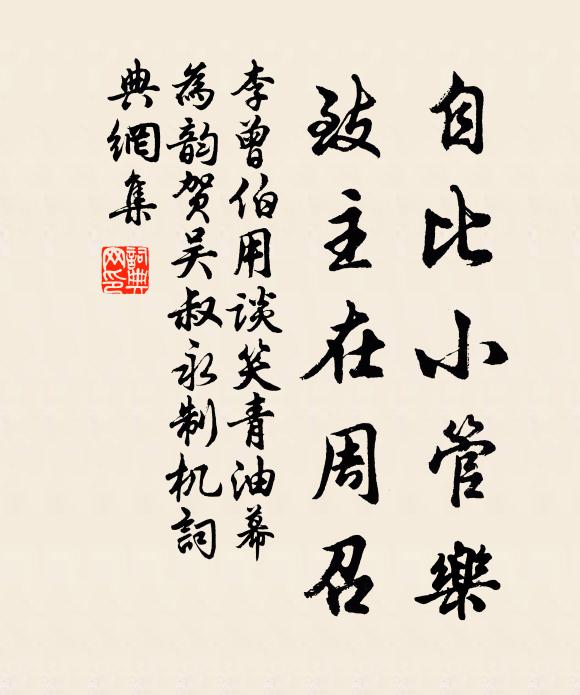 自比小管樂
致主在周召
李曾伯用談笑青油幕
為韵賀吴叔永制机詞
典網集
詞典网印